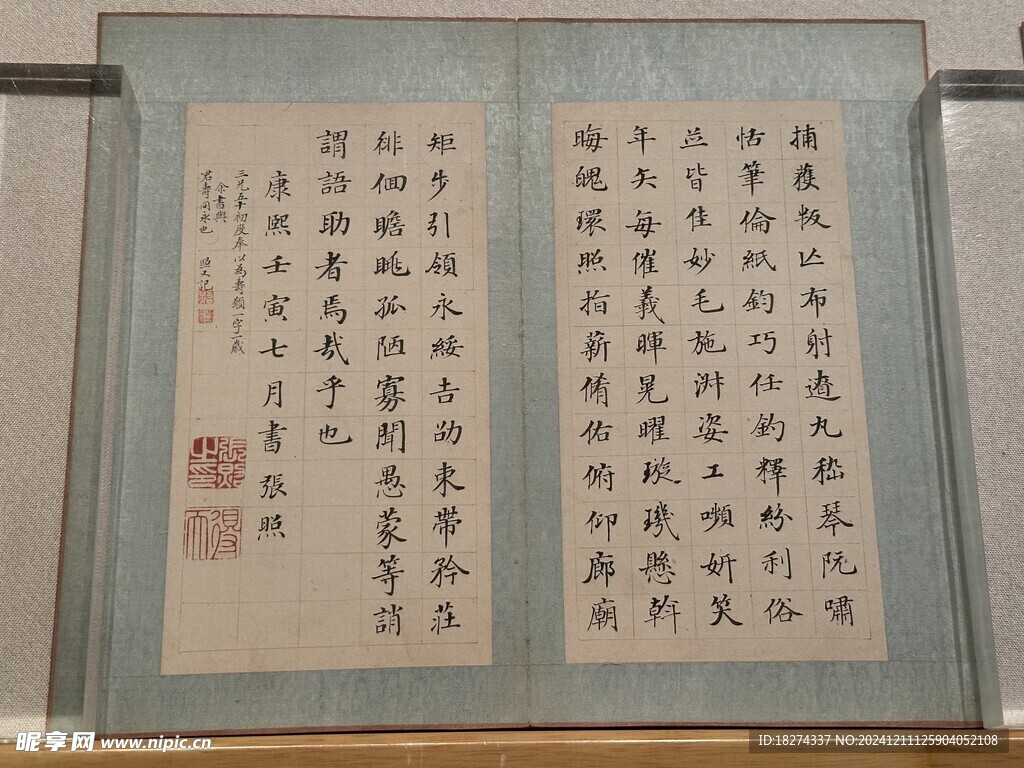 捕獲叛亡布射遼丸嵇琴阮嘯
恬筆倫紙鈞巧任釣釋紛利俗
並皆佳妙毛施淑姿工嚬妍笑
年矢每催羲暉晃曜璇璣懸斡
晦魄環照指薪脩佑俯仰廊廟
矩步引領永綏吉劭束帶矜莊
徘徊瞻眺孤陋寡聞愚蒙等誚
謂語助者焉哉乎也
康熙壬寅七月書張照
三兄五十初度奉以為壽願一字一歲
余書與
君壽同永也 照又記
張照之印
得天
昵享网 www.nipic.cn
ID:18274337 NO:20241211125904052108